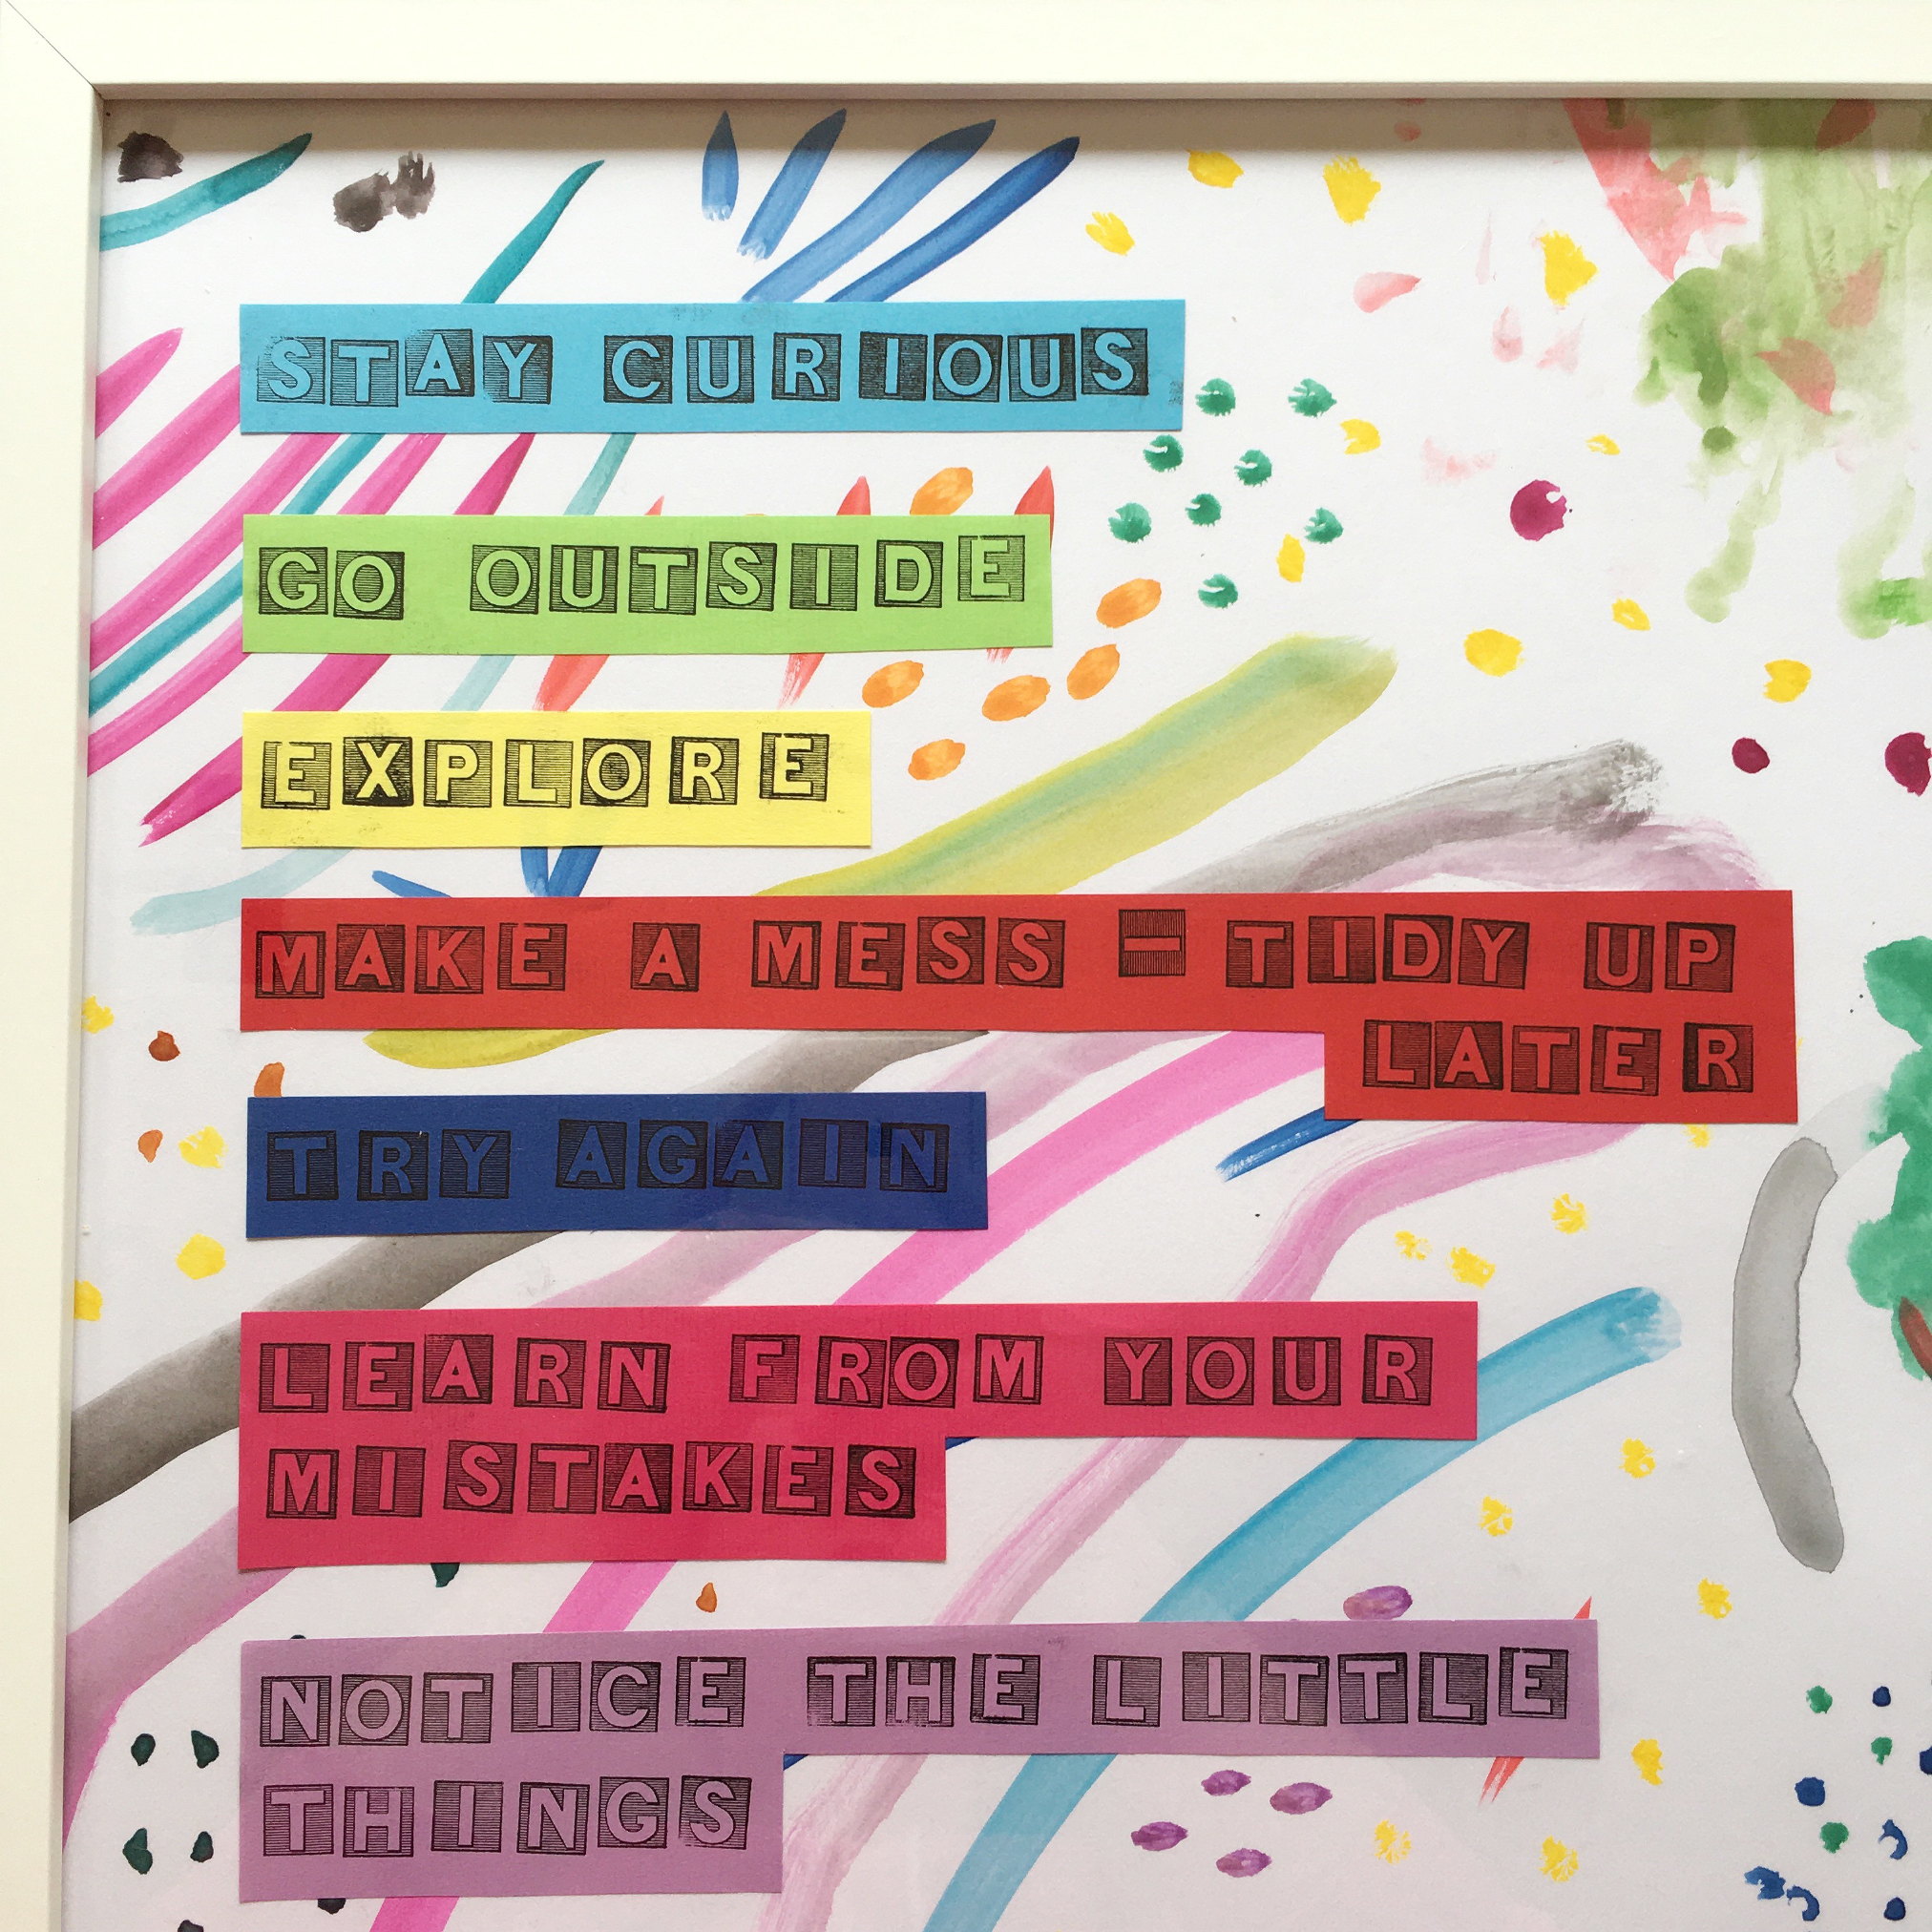 STAY CURIOUS
GO OUTSIDE
EXPLORE
MAKE A MESS - TIDY UP
LATER
TRY AGAIN
LEARN FROM YOUR
MISTAKES
NOTICE THE LITTLE
THINGS